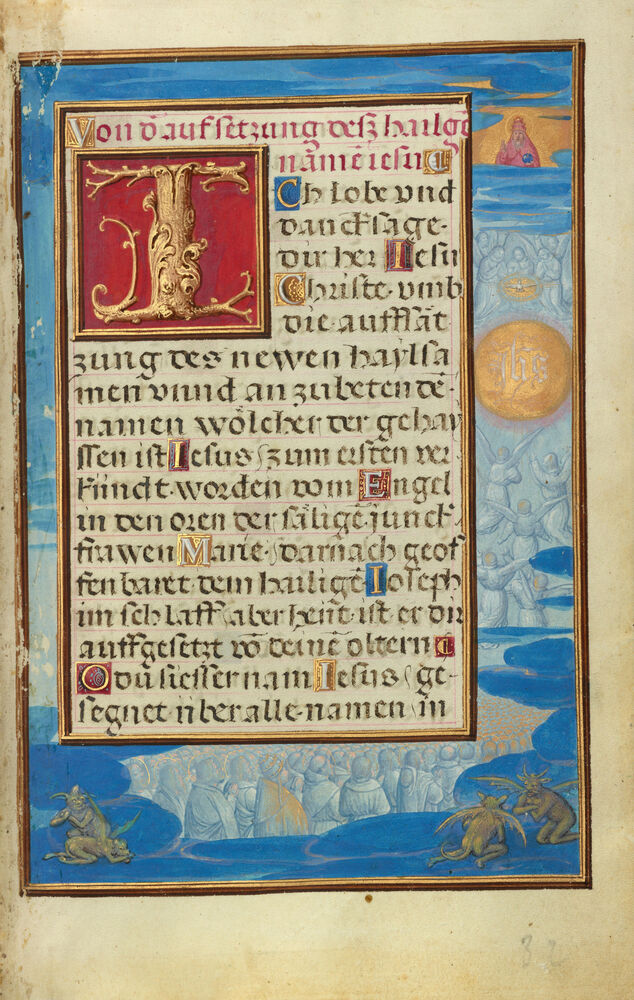 Von d̄ aufsetzung desz hailgē
namē iesu
Ich lobe vnd
danck sage·
dir her Iesu
Christe· vmb
die auffsat
zung des newen haylsa
men vnnd an zubeten dē·
namen wölcher der gehay
ssen ist Iesus/ zum ersten ver
kündt· worden vom Engel
in den oren der säligē junck
frawen Marie· darnach geof
fenbaret· dem hailigē Ioseph
im schlaff/ aber heut· ist er dir
auffgesetzt vō deinē oltern
O du siesser nam Iesus/ ge·
segnet v̈ber alle· namen/ in
ihs
32